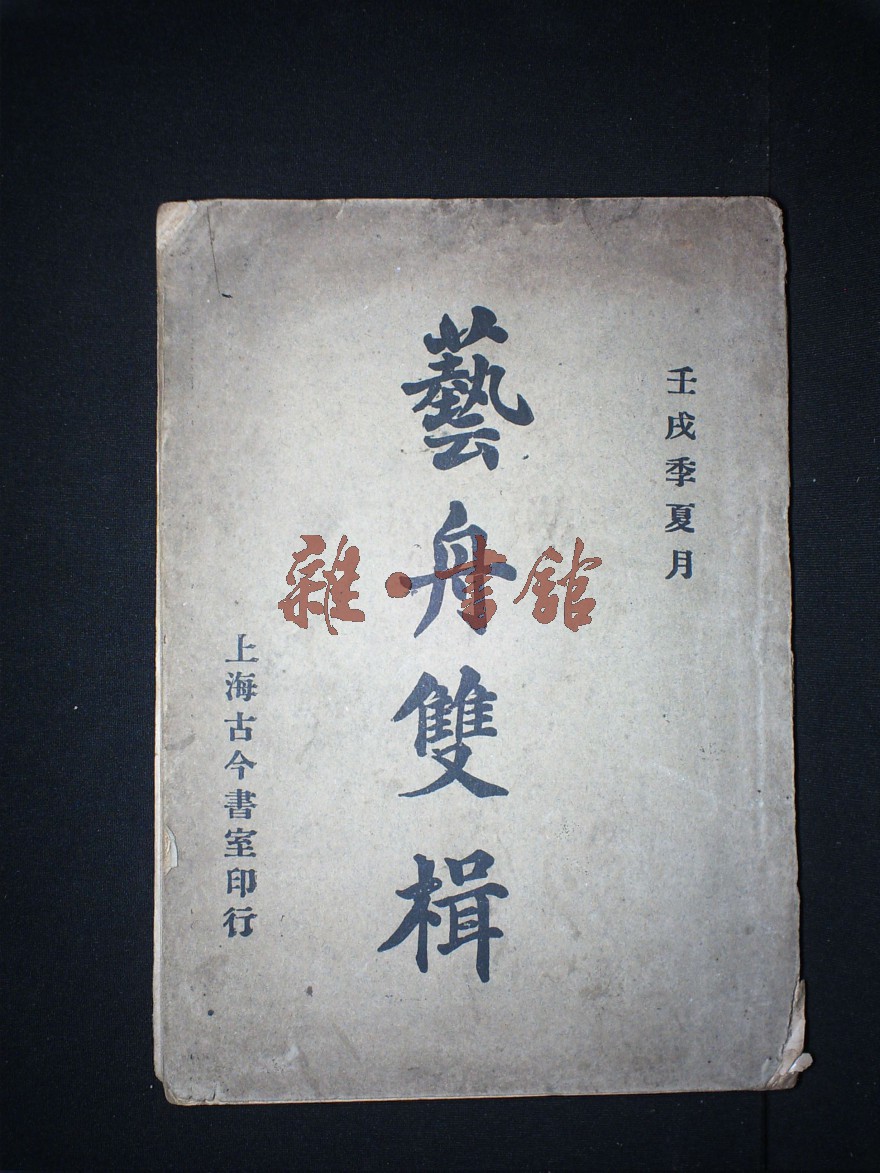 壬戌季夏月
藝舟雙楫
上海古今書室印行
雜·書館